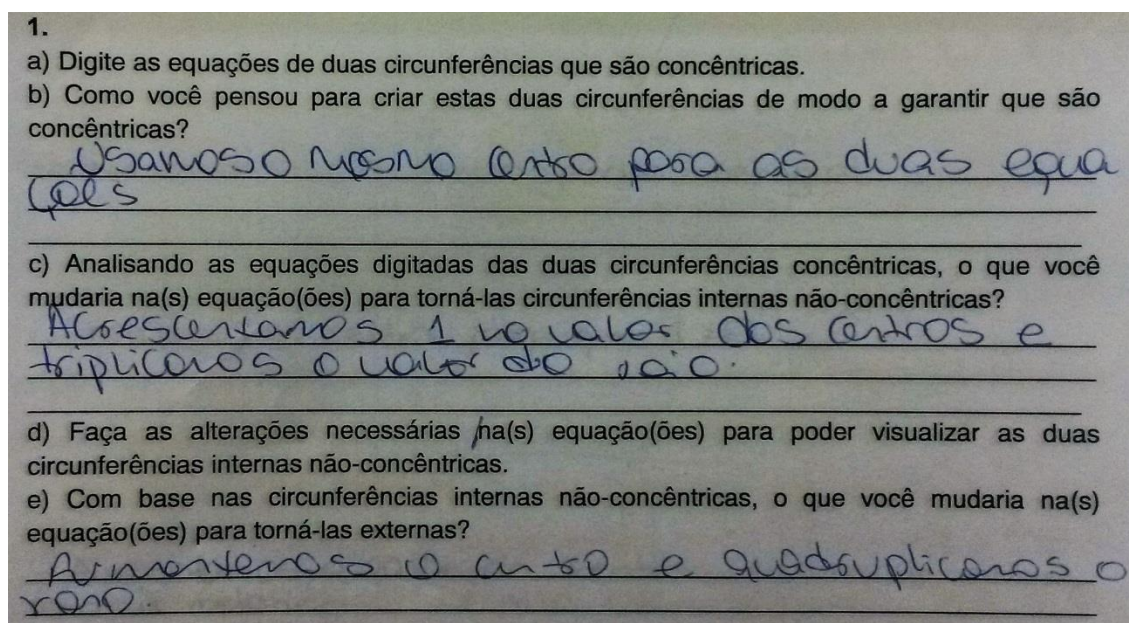 1.
a) Digite as equações de duas circunferências que são concêntricas.
b) Como você pensou para criar estas duas circunferências de modo a garantir que são
concêntricas?
Usamos o mesmo centro para as duas equa
ções
c) Analisando as equações digitadas das duas circunferências concêntricas, o que você
mudaria na(s) equação(ões) para torná-las circunferências internas não-concêntricas?
Acrescentamos 1 no valor dos centros e
triplicamos o valor do raio.
d) Faça as alterações necessárias na(s) equação(ões) para poder visualizar as duas
circunferências internas não-concêntricas.
e) Com base nas circunferências internas não-concêntricas, o que você mudaria na(s)
equação(ões) para torná-las externas?
o centro e quadruplicamos o
raio.